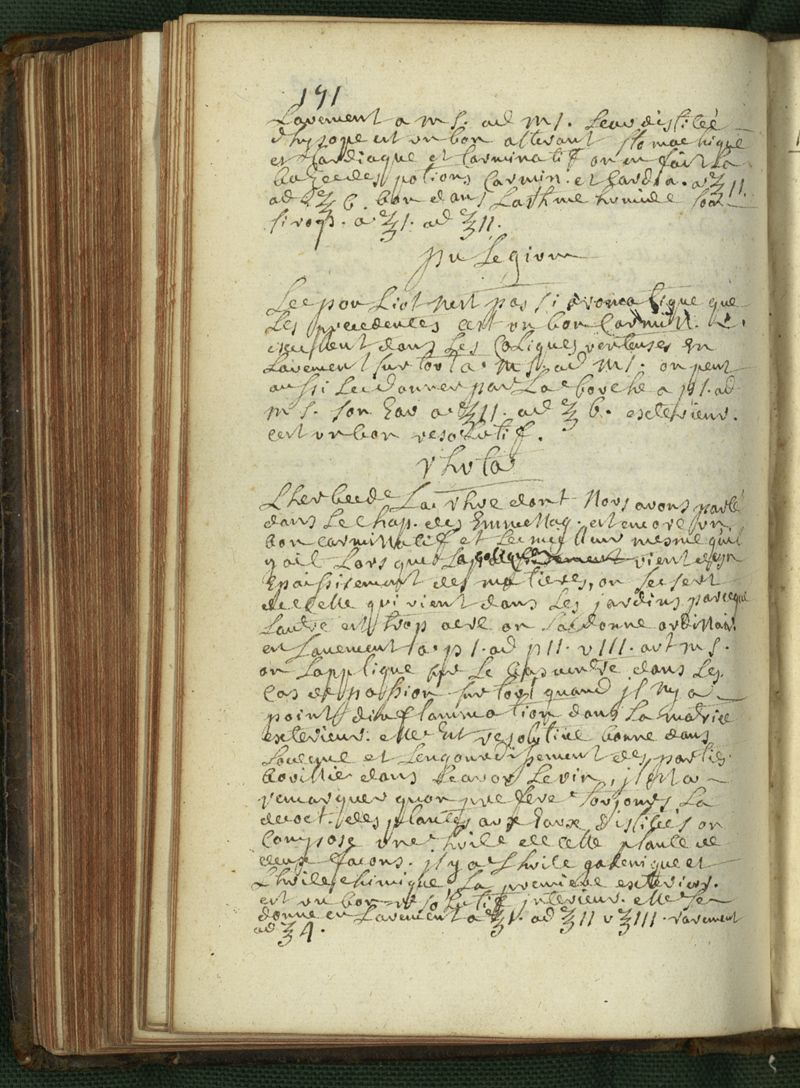 191
Lavement a m s. ad m 1. Leau distilée
dhysope est un bon alterant stomachique
et Cardiaque et Carminatif on en fait La
baze des potions Carmin. et Cardia. a ℥ 11.
ad ℥ 6. bon dans Lasthme humide son
sirop. a ℥ 1. ad ℥ 11.
pulegium
Le pouliot nest pas si aromatique que
Les precedentes cest un bon Carmin.
dans Les Coliques venteuses en
Lavement sur tout a m s. ad m 1. on peut
aussi Le donner par La bouche a p 1. ad
m s. son Eau a ℥ 11. ad ℥ 6. exterieur.
cest un bon resolutif.
rhuta
Lherbe de La rhue dont Nous avons parlé
dans Le Chap. des Emmenag. est encore un
bon carminatif et Le meilleur mesme quil
y ait Lors que La colique vient dun
Epaississement des matieres, on se sert
de celle qui vient dans Les jardins parceque
Lautre est trop acre on La donne ordinair.
en Lavement a p 1. ad p 11. v 111. aut m s.
on Lapplique sur Le dans Les
Cas de passion sur tout quand jl Ny a
point dinflammation dans La matrice
exterieur. elle Est resolutive bonne dans
et Lengourdissement des parties
bouillie dans Leau ou Le vin, jl est a
remarquer quon prefere toujours La
decoct. des plantes aux Eaux distilées on
Compose une huile de cette plante de
deux facons. jl y a Lhuile galenique et
Lhuile chimique La premiere exterieur.
est un bon resolutif jnterieur. elle se
donne en Lavement a ℥ 1. ad ℥ 11 v ℥ 111. rarement
ad ℥ 4.